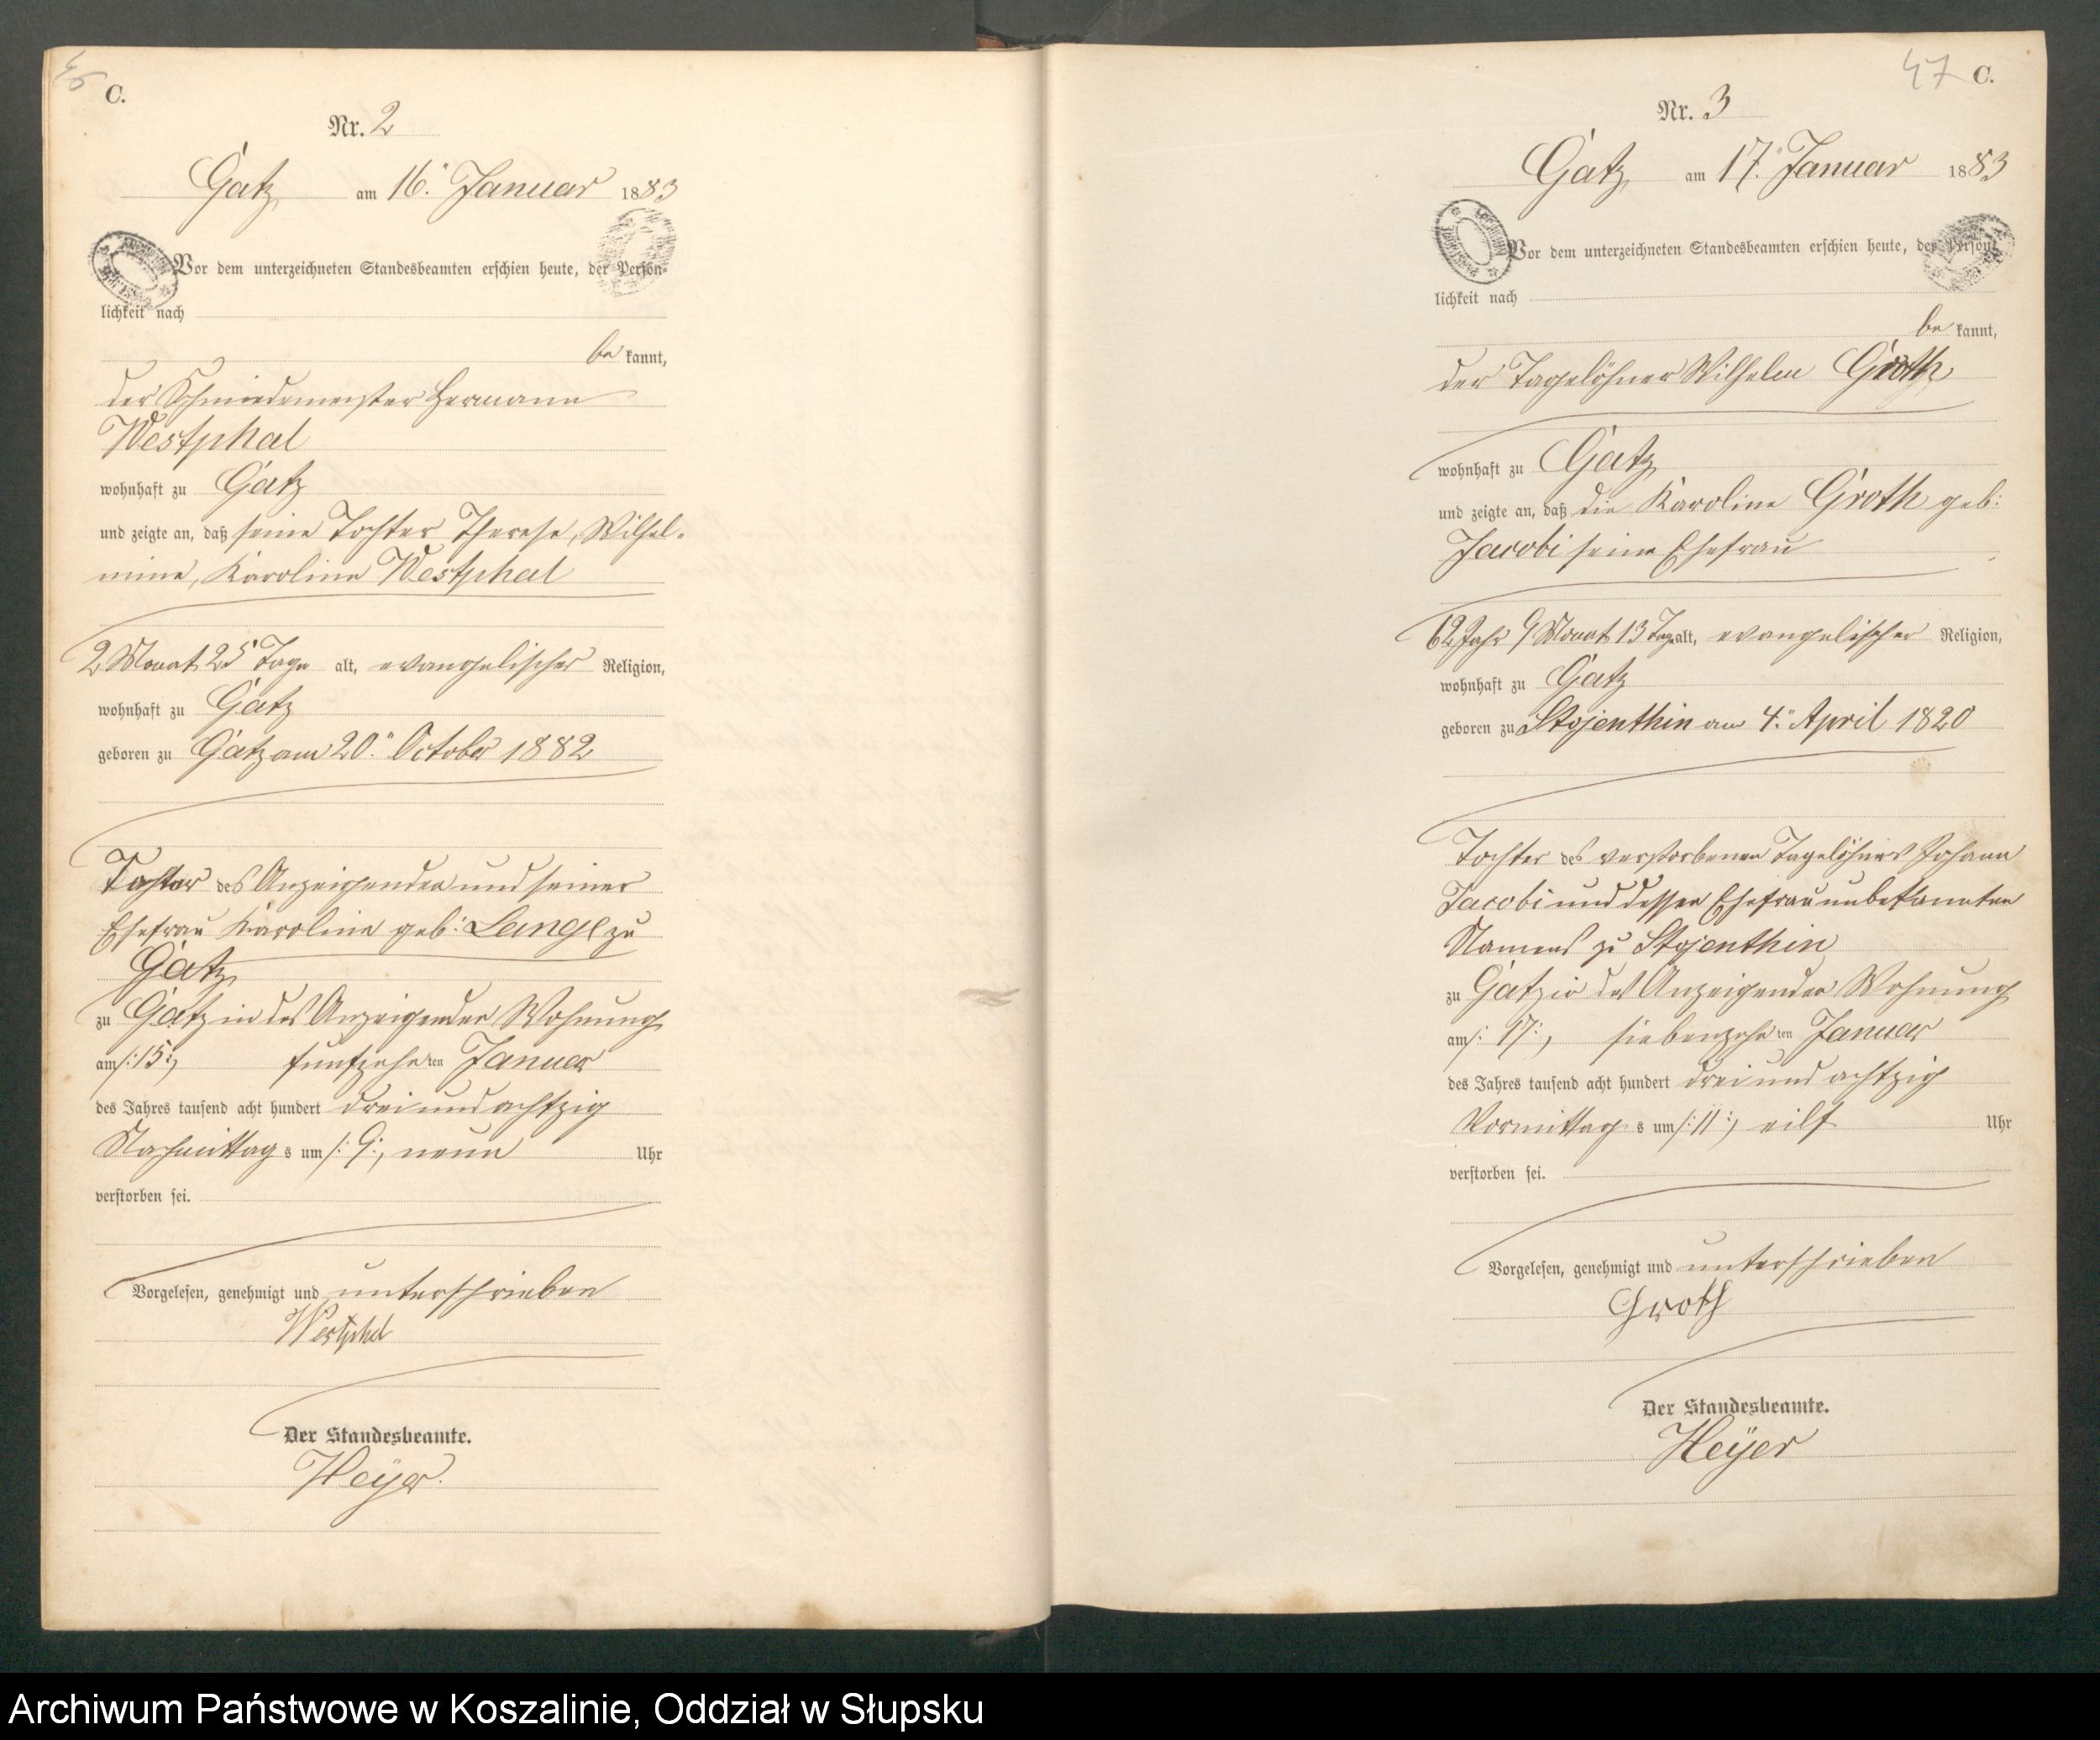 46
C.
Nr. 2
Gatz am 16. Januar 1883
Vor dem unterzeichneten Standesbeamten erschien heute, der Persön-
lichkeit nach
be kannt,
der Schmiedemeister Hermann
Westphal
wohnhaft zu Gatz
und zeigte an, daß seine Tochter Therese, Wilhel-
mine, Karoline Westphal
2 Monat 25 Tage alt, evangelischer Religion,
wohnhaft zu Gatz
geboren zu Gatz am 20. October 1882
Tochter des Anzeigenden und seiner
Ehefrau Karoline geb: Lange zu
Gatz
zu Gatz in des Anzeigenden Wohnung
am /: 15 :/ fünfzehn ten Januar
des Jahres tausend acht hundert drei und achtzig
Nachmittag s um /: 9 :/ neun Uhr
verstorben sei.
Vorgelesen, genehmigt und unterschrieben
Westphal
Der Standesbeamte.
Heÿer.
47 C.
Nr. 3
Gatz am 17. Januar 1883
Vor dem unterzeichneten Standesbeamten erschien heute, der Persön-
lichkeit nach
be kannt,
der Tagelöhner Wilhelm Groth
wohnhaft zu Gatz
und zeigte an, daß die Karoline Groth geb:
Jacobi seine Ehefrau
62 Jahr 9 Monat 13 Tage alt, evangelischer Religion,
wohnhaft zu Gatz
geboren zu Stojenthin am 4. April 1820
Tochter des verstorbenen Tagelöhners Johann
Jacobi und dessen Ehefrau unbekannten
Namens zu Stojenthin
zu Gatz in des Anzeigenden Wohnung
am /: 17 :/ siebenzehn ten Januar
des Jahres tausend acht hundert drei und achtzig
Vormittag s um /: 11 :/ eilf Uhr
verstorben sei.
Vorgelesen, genehmigt und unterschrieben
Groth
Der Standesbeamte.
Heÿer
Archiwum Państwowe w Koszalinie, Oddział w Słupsku